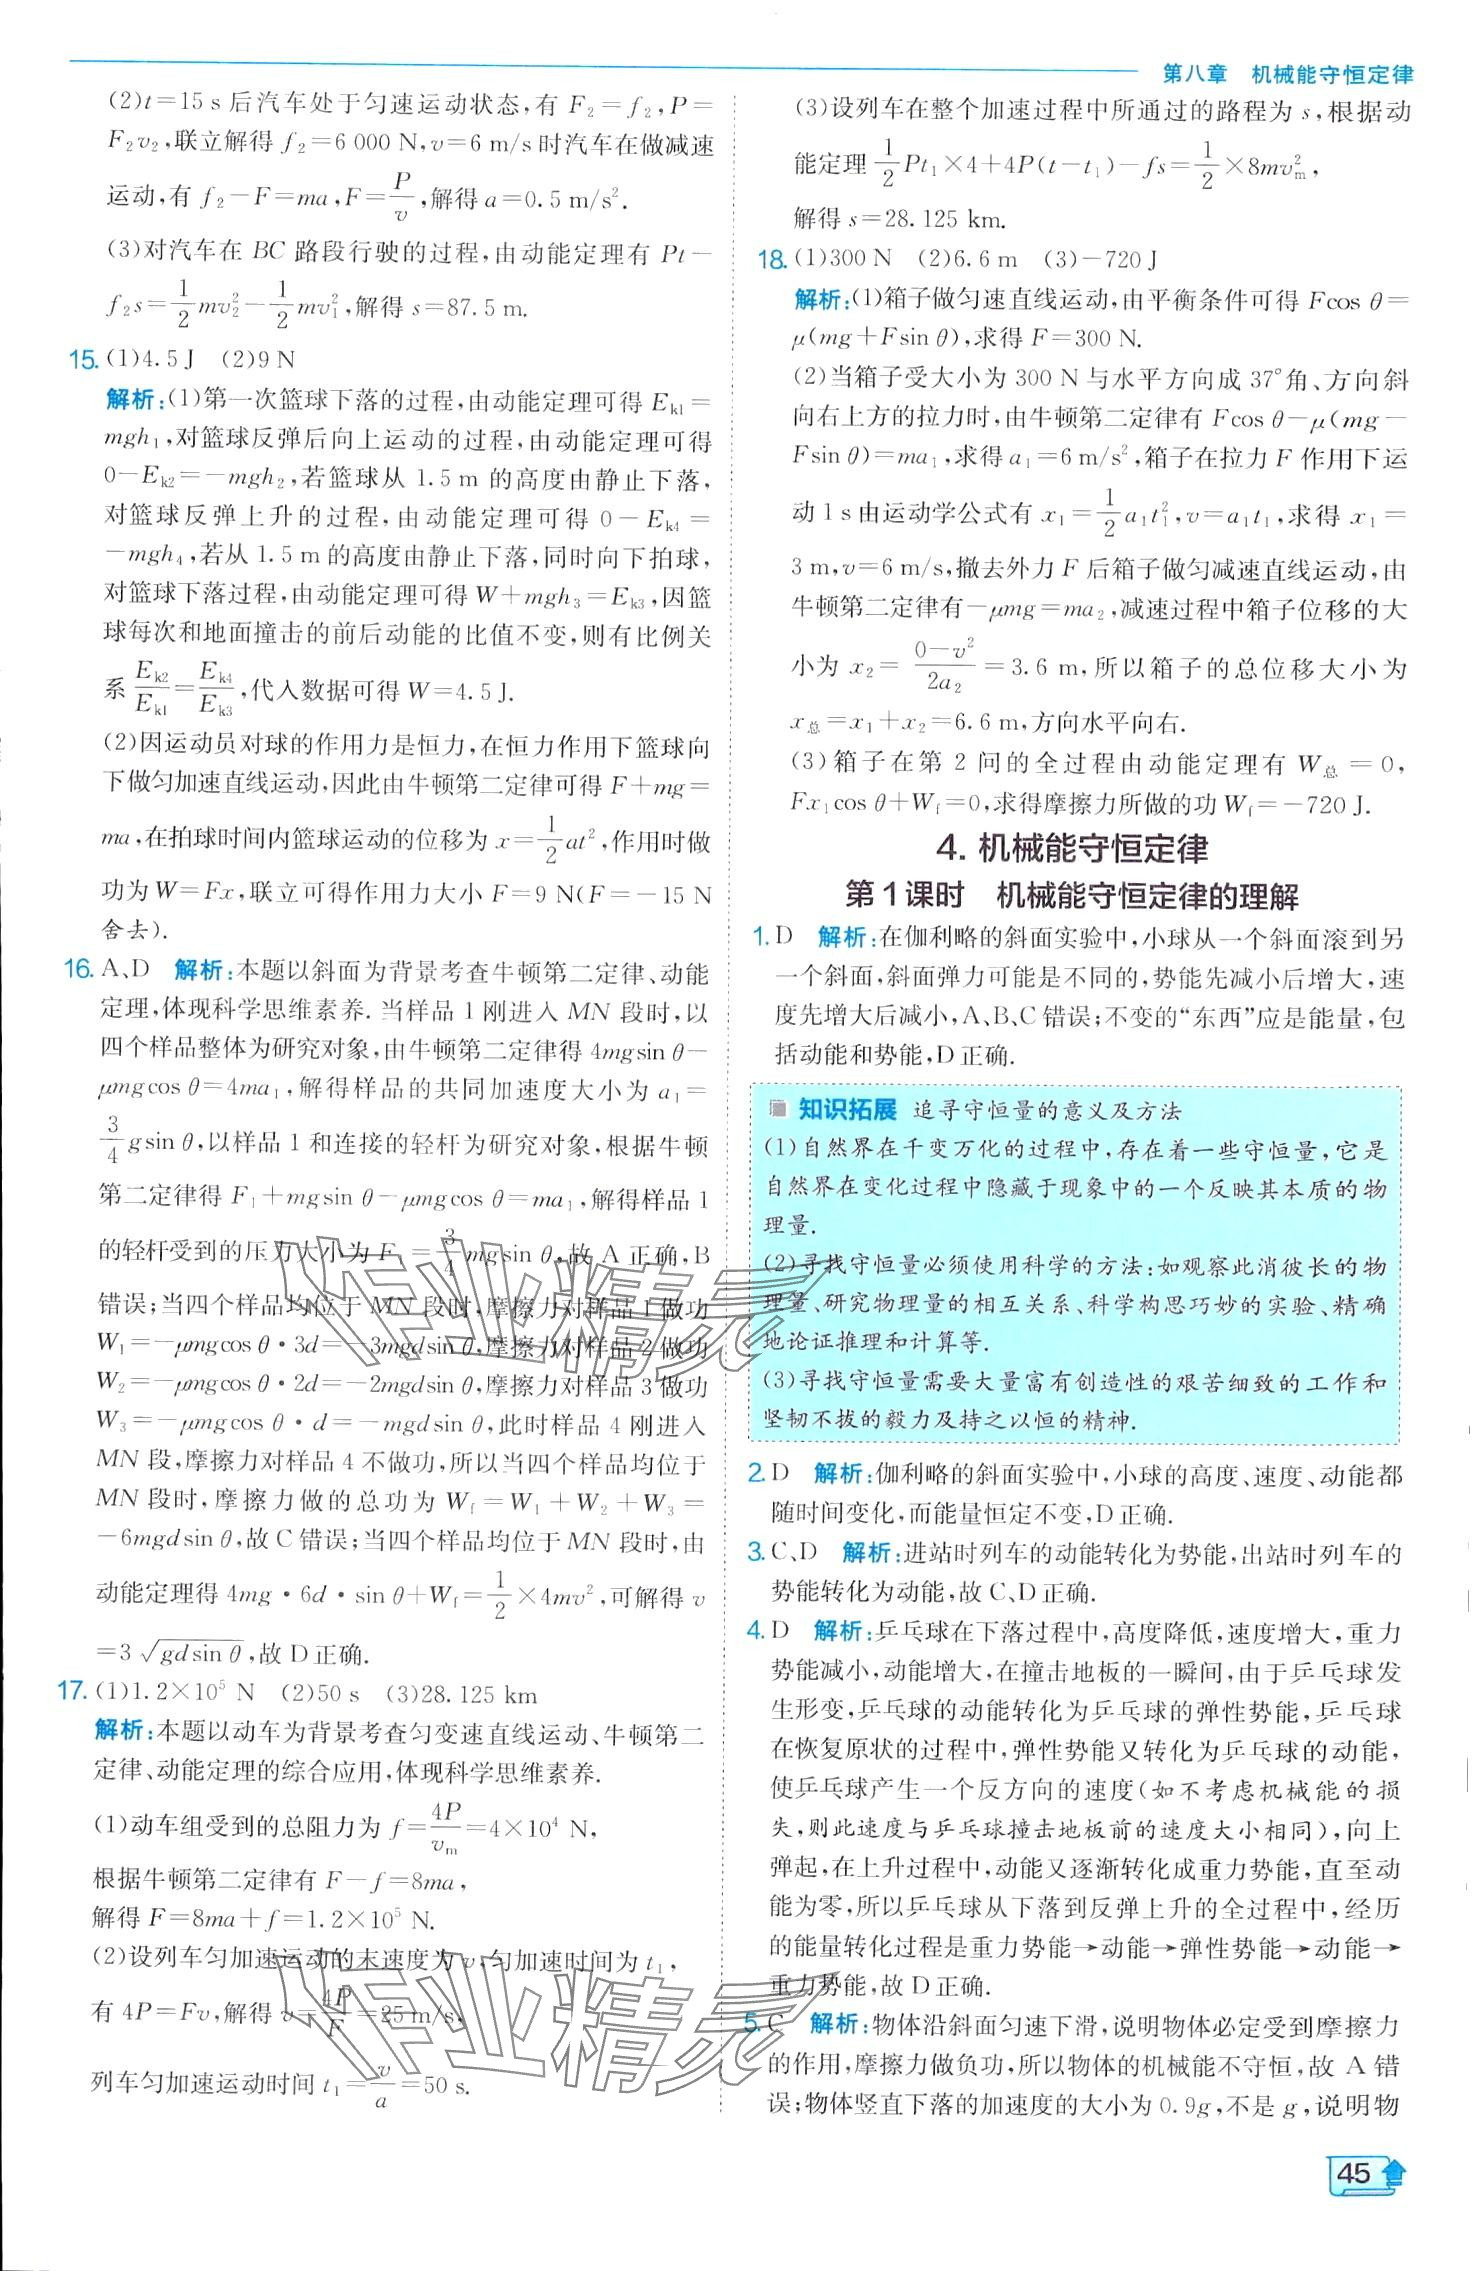 第八章　机械能守恒定律
(2)t=15 s后汽车处于匀速运动状态,有F₂=f₂,P=
F₂v₂,联立解得f₂=6 000 N,v=6 m/s时汽车在做减速
运动,有f₂-F=ma,F=P/v,解得a=0.5 m/s².
(3)对汽车在BC路段行驶的过程,由动能定理有Pt-
f₂s=1/2mv₂²-1/2mv₁²,解得s=87.5 m.
15. (1)4.5 J　(2)9 N
解析:(1)第一次篮球下落的过程,由动能定理可得Eₖ₁=
mgh₁,对篮球反弹后向上运动的过程,由动能定理可得
0-Eₖ₂=-mgh₂,若篮球从1.5 m的高度由静止下落,
对篮球反弹上升的过程,由动能定理可得0-Eₖ₄=
-mgh₄,若从1.5 m的高度由静止下落,同时向下拍球,
对篮球下落过程,由动能定理可得W+mgh₃=Eₖ₃,因篮
球每次和地面撞击的前后动能的比值不变,则有比例关
系Eₖ₂/Eₖ₁=Eₖ₄/Eₖ₃,代入数据可得W=4.5 J.
(2)因运动员对球的作用力是恒力,在恒力作用下篮球向
下做匀加速直线运动,因此由牛顿第二定律可得F+mg=
ma,在拍球时间内篮球运动的位移为x=1/2at²,作用时做
功为W=Fx,联立可得作用力大小F=9 N(F=-15 N
舍去).
16. A、D　解析:本题以斜面为背景考查牛顿第二定律、动能
定理,体现科学思维素养. 当样品1刚进入MN段时,以
四个样品整体为研究对象,由牛顿第二定律得4mgsin θ-
μmgcos θ=4ma₁,解得样品的共同加速度大小为a₁=
3/4gsin θ,以样品1和连接的轻杆为研究对象,根据牛顿
第二定律得F₁+mgsin θ-μmgcos θ=ma₁,解得样品1
的轻杆受到的压力大小为F₁=3/4mgsin θ,故A正确,B
错误;当四个样品均位于MN段时,摩擦力对样品1做功
W₁=-μmgcos θ·3d=-3mgdsin θ,摩擦力对样品2做功
W₂=-μmgcos θ·2d=-2mgdsin θ,摩擦力对样品3做功
W₃=-μmgcos θ·d=-mgdsin θ,此时样品4刚进入
MN段,摩擦力对样品4不做功,所以当四个样品均位于
MN段时,摩擦力做的总功为W_f=W₁+W₂+W₃=
-6mgdsin θ,故C错误;当四个样品均位于MN段时,由
动能定理得4mg·6d·sin θ+W_f=1/2×4mv²,可解得v
=3√(gdsin θ),故D正确.
17. (1)1.2×10⁵ N　(2)50 s　(3)28.125 km
解析:本题以动车为背景考查匀变速直线运动、牛顿第二
定律、动能定理的综合应用,体现科学思维素养.
(1)动车组受到的总阻力为f=4P/vₘ=4×10⁴ N,
根据牛顿第二定律有F-f=8ma,
解得F=8ma+f=1.2×10⁵ N.
(2)设列车匀加速运动的末速度为v,匀加速时间为t₁,
有4P=Fv,解得v=4P/F=25 m/s,
列车匀加速运动时间t₁=v/a=50 s.
(3)设列车在整个加速过程中所通过的路程为s,根据动
能定理1/2Pt₁×4+4P(t-t₁)-fs=1/2×8mvₘ²,
解得s=28.125 km.
18. (1)300 N　(2)6.6 m　(3)-720 J
解析:(1)箱子做匀速直线运动,由平衡条件可得Fcos θ=
μ(mg+Fsin θ),求得F=300 N.
(2)当箱子受大小为300 N与水平方向成37°角、方向斜
向右上方的拉力时,由牛顿第二定律有Fcos θ-μ(mg-
Fsin θ)=ma₁,求得a₁=6 m/s²,箱子在拉力F作用下运
动1 s由运动学公式有x₁=1/2a₁t₁²,v=a₁t₁,求得x₁=
3 m,v=6 m/s,撤去外力F后箱子做匀减速直线运动,由
牛顿第二定律有-μmg=ma₂,减速过程中箱子位移的大
小为x₂=(0-v²)/2a₂=3.6 m,所以箱子的总位移大小为
x总=x₁+x₂=6.6 m,方向水平向右.
(3)箱子在第2问的全过程由动能定理有W总=0,
Fx₁cos θ+W_f=0,求得摩擦力所做的功W_f=-720 J.
4. 机械能守恒定律
第1课时　机械能守恒定律的理解
1. D　解析:在伽利略的斜面实验中,小球从一个斜面滚到另
一个斜面,斜面弹力可能是不同的,势能先减小后增大,速
度先增大后减小,A、B、C错误;不变的“东西”应是能量,包
括动能和势能,D正确.
知识拓展　追寻守恒量的意义及方法
(1)自然界在千变万化的过程中,存在着一些守恒量,它是
自然界在变化过程中隐藏于现象中的一个反映其本质的物
理量.
(2)寻找守恒量必须使用科学的方法:如观察此消彼长的物
理量、研究物理量的相互关系、科学构思巧妙的实验、精确
地论证推理和计算等.
(3)寻找守恒量需要大量富有创造性的艰苦细致的工作和
坚韧不拔的毅力及持之以恒的精神.
2. D　解析:伽利略的斜面实验中,小球的高度、速度、动能都
随时间变化,而能量恒定不变,D正确.
3. C、D　解析:进站时列车的动能转化为势能,出站时列车的
势能转化为动能,故C、D正确.
4. D　解析:乒乓球在下落过程中,高度降低,速度增大,重力
势能减小,动能增大,在撞击地板的一瞬间,由于乒乓球发
生形变,乒乓球的动能转化为乒乓球的弹性势能,乒乓球
在恢复原状的过程中,弹性势能又转化为乒乓球的动能,
使乒乓球产生一个反方向的速度(如不考虑机械能的损
失,则此速度与乒乓球撞击地板前的速度大小相同),向上
弹起,在上升过程中,动能又逐渐转化成重力势能,直至动
能为零,所以乒乓球从下落到反弹上升的全过程中,经历
的能量转化过程是重力势能→动能→弹性势能→动能→
重力势能,故D正确.
5. C　解析:物体沿斜面匀速下滑,说明物体必定受到摩擦力
的作用,摩擦力做负功,所以物体的机械能不守恒,故A错
误;物体竖直下落的加速度的大小为0.9g,不是g,说明物
45
作业精灵
作业精灵